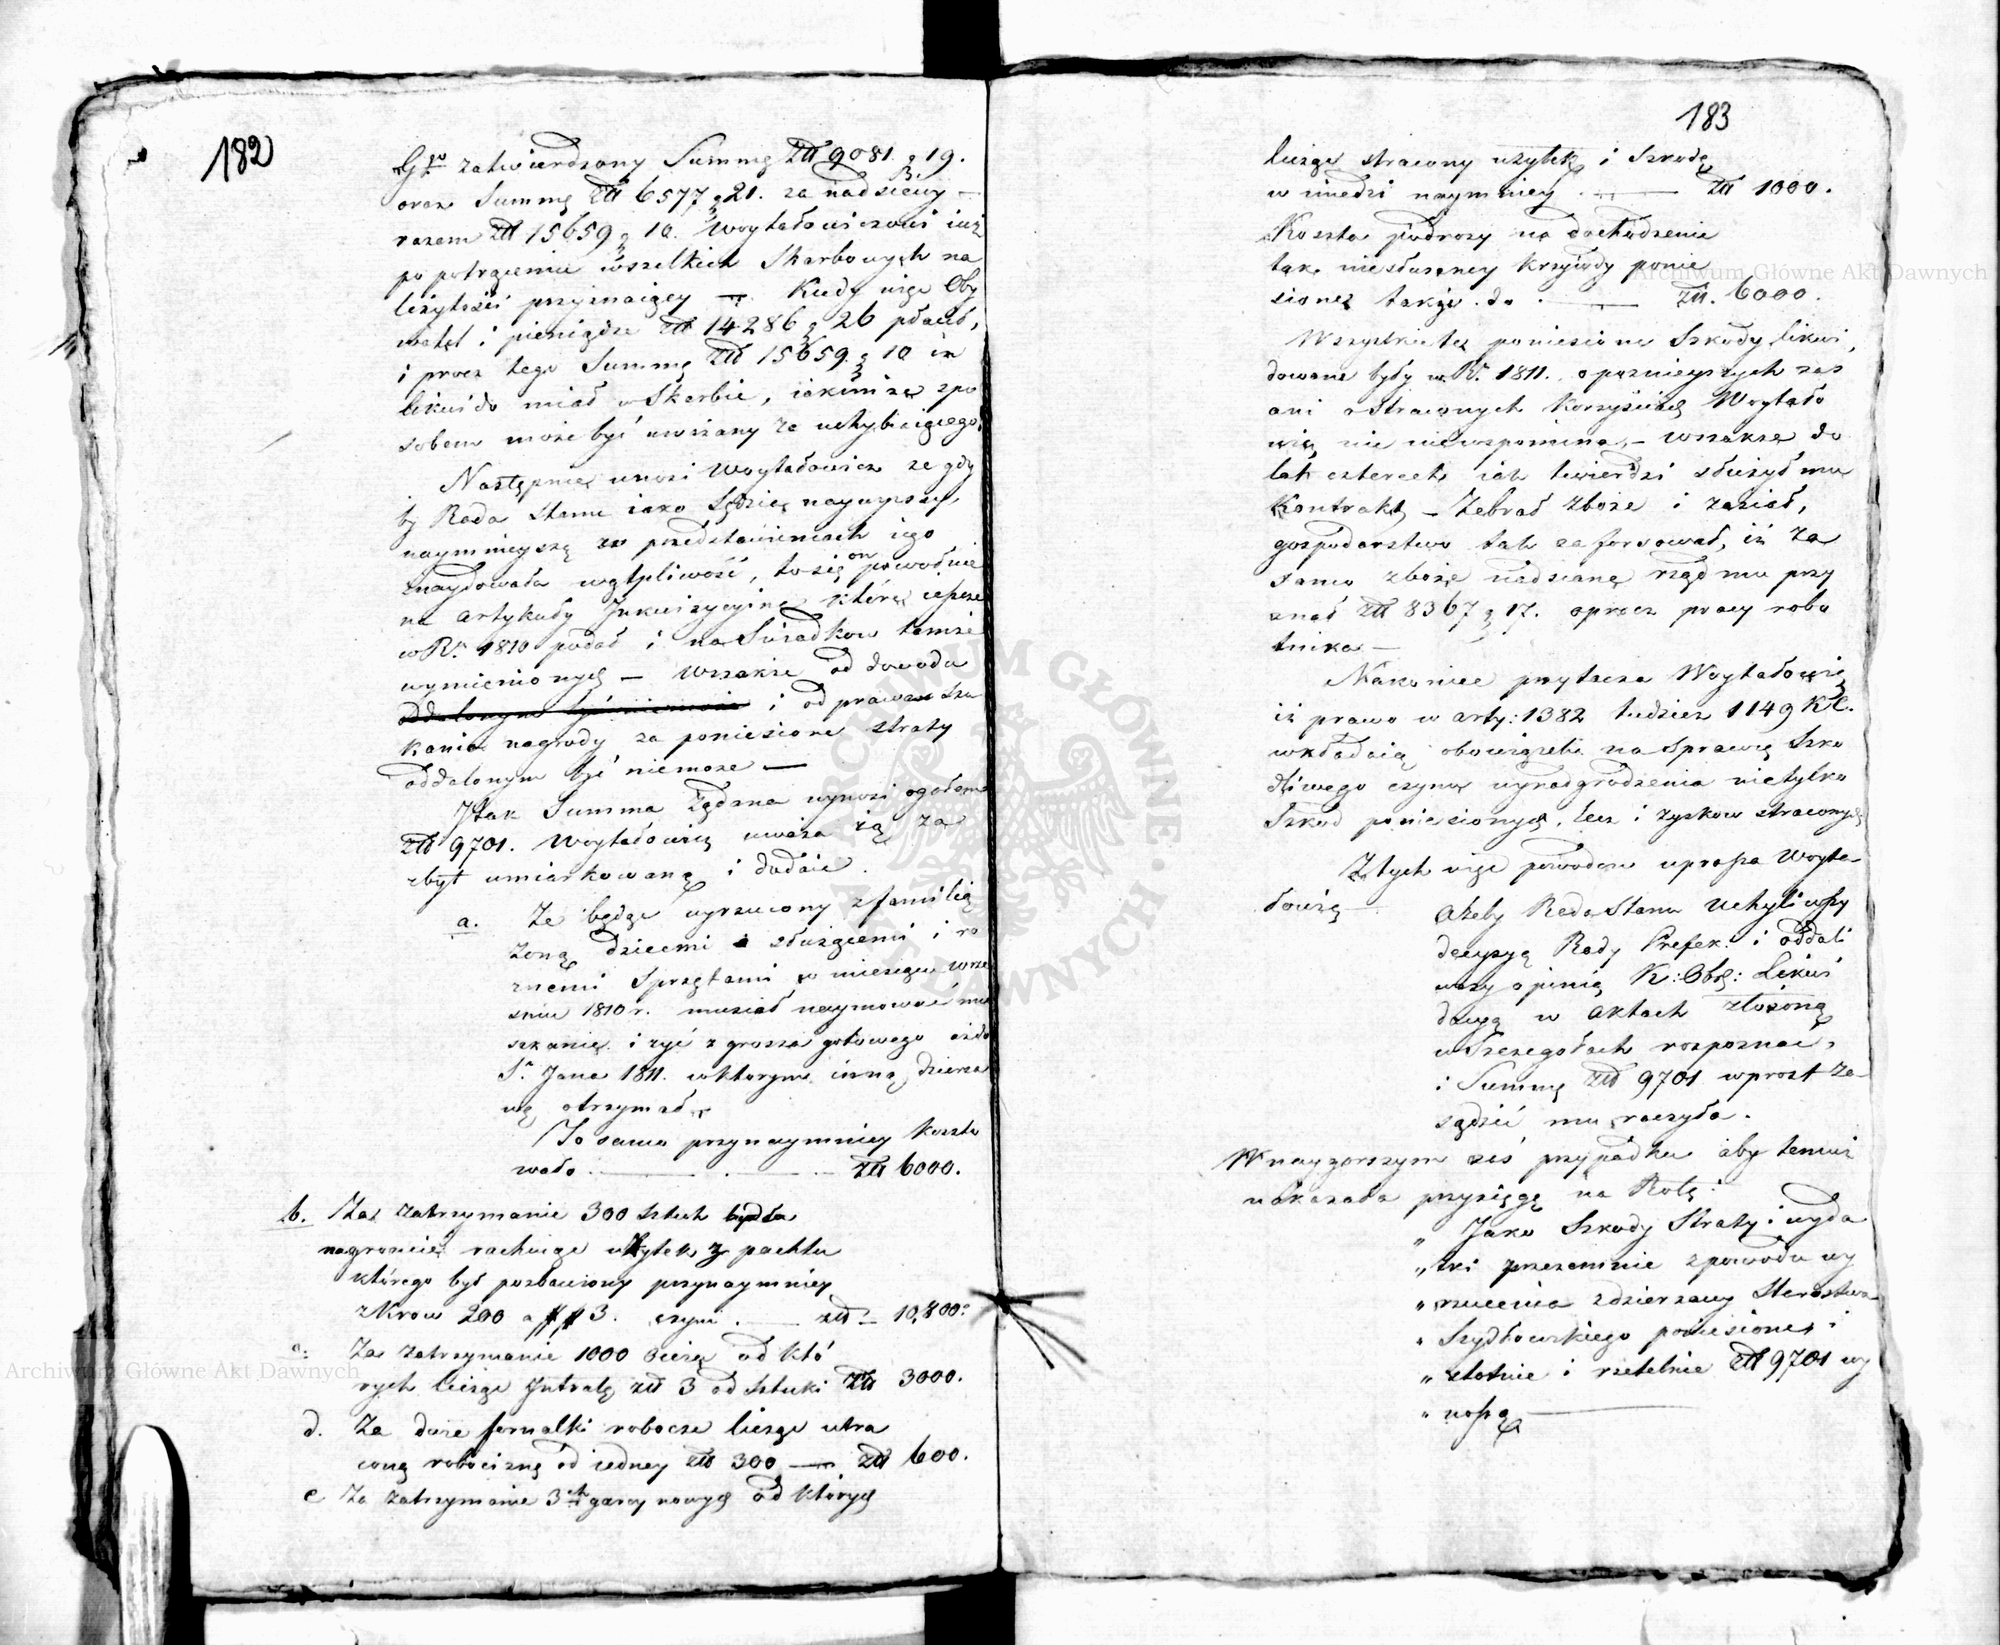 182
Ggo zatwierdzony Summę Złł 9081. g 19.
oraz Summę Złł 6577 g 21. za nadsiewy —
razem Złł 15659 g 10. Woytadowiczowi iuż
po potrąceniu wszelkich Skarbowych na
leżytości przyznaiącey — Kiedy więc Oby
watel i pieniądze Złł 14286 g 26 płacił,
i procz tego Summę Złł 15659. g 10 in
liquido miał w Skarbie, iakimże spo
sobem może być uważany za uchybiaiącego.
Następnie wnosi Woytadowicz że gdy
by Rada Stanu iako Sędzia naywyższy,
naymnieyszą w przedstawieniach iego
znaydowała wątpliwość, to się on powoduie
na artykuły Inkwizycyine które ieszcze
w Rr. 1810 podał i na Swiadkow tamże
wymienionych — wszakże od dowodu
oddalonym być niemoże i od prawa szu
kania nagrody za poniesione straty
oddalonym być niemoże —
Itak Summa żądana wynosi ogołem
Złł 9701. Woytadowicz uważa ią za
zbyt umiarkowaną i dodaie.
a. Ze będąc wyrzucony z familią
żoną dziećmi i służącemi i ro
żnemi Sprzętami w miesiącu wrze
śniu 1810 r. musiał naymować mie
szkanie i żyć z grosza gotowego aż do
S. Jana 1811. w którym inną dzierża
wę otrzymał.
To samo przynaymniey koszto
wało. — Złł 6000.
b. Za zatrzymanie 300 sztuk bydła
nagroncie rachuiąc użytek z pachtu
którego był pozbawiony przynaymniey
z Krow 200 a 3. czyni. — złł — 10,800.
c. Za zatrzymanie 1000 owiec od któ
rych licząc Intratę złł 3 od sztuki Złł 3000.
d. Za dwie fornalki robocze licząc utra
coną robociznę od iedney złł 300 — Złł 600.
e Za zatrzymanie 3ch garcy nowych od których
183
licząc stracony użytek i Szkodę
w miedzi naymniey — Złł 1000.
Koszta podrozy na dochodzenie
tak niesłuszney krzywdy ponie
sione także do — Złł. 6000.
Wszystkie te poniesione Szkody likwi
dowane były w Rr. 1811. o pożnieyszych zaś
ani o straconych korzyściach Woytado
wicz nie niewspomina, — wszakże do
lat czterech iak twierdzi służył mu
Kontrakt — Zebrał zboże i zasiał,
gospodarstwo tak zaforsował, iż za
samo zboże nadsiane rząd mu przy
znał Złł 8367 g 17. oprocz pracy robo
tnika —
Nakoniec przytacza Woytadowicz
iż prawo w arty: 1382 tudzież 1149 K.C.
wkładaią obowiązek na Sprawcę Szko
dliwego czynu wynagrodzenia nietylko
Szkod poniesionych, lecz i zyskow straconych
Z tych więc powodow uprasza Woyta-
dowicz —
Ażeby Rada Stanu uchyliwszy
decyzyą Rady Prefek: i oddali
wszy opinią K: Obr: Likwi
dacyą w aktach złożoną
w Szczegołach rozpoznać,
i Summę Złł 9701 wprost za-
sądzić mu raczyła.
W naygorszym zaś przypadku aby temuż
nakazała przysięgę na Rotę:
„ Jako Szkody Straty i wyda
„ tki przezemnie z powodu wy
„ rzucenia z dzierzawy Starostwa
„ Szydłowskiego poniesione i
„ istotnie i rzetelnie Złł 9701 wy
„ noszą —
Archiwum Główne Akt Dawnych
Archiwum Główne Akt Dawnych
ARCHIWUM GŁÓWNE AKT DAWNYCH